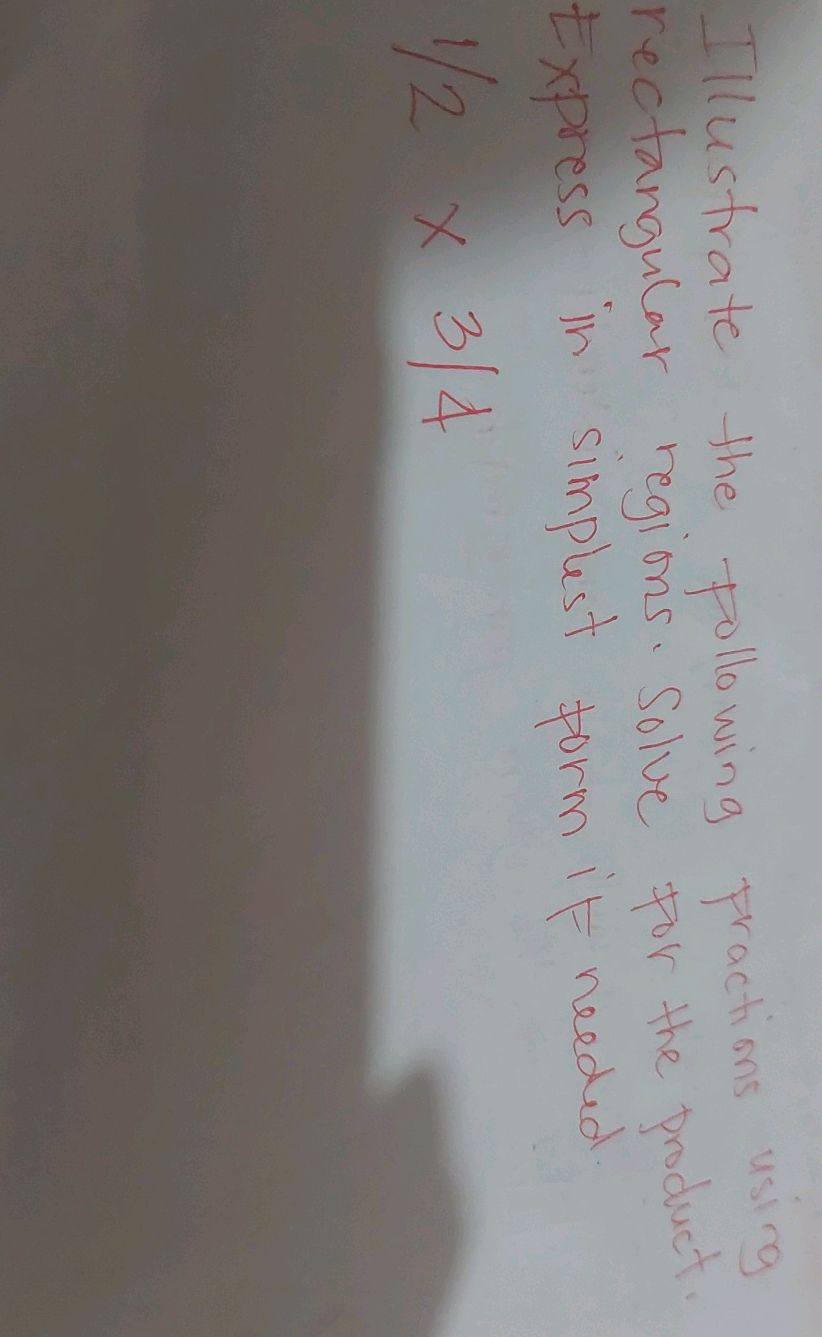 Illustrate the following fractions using
rectangular regions. Solve for the product.
Express in simplest form if needed
1/2 x 3/4